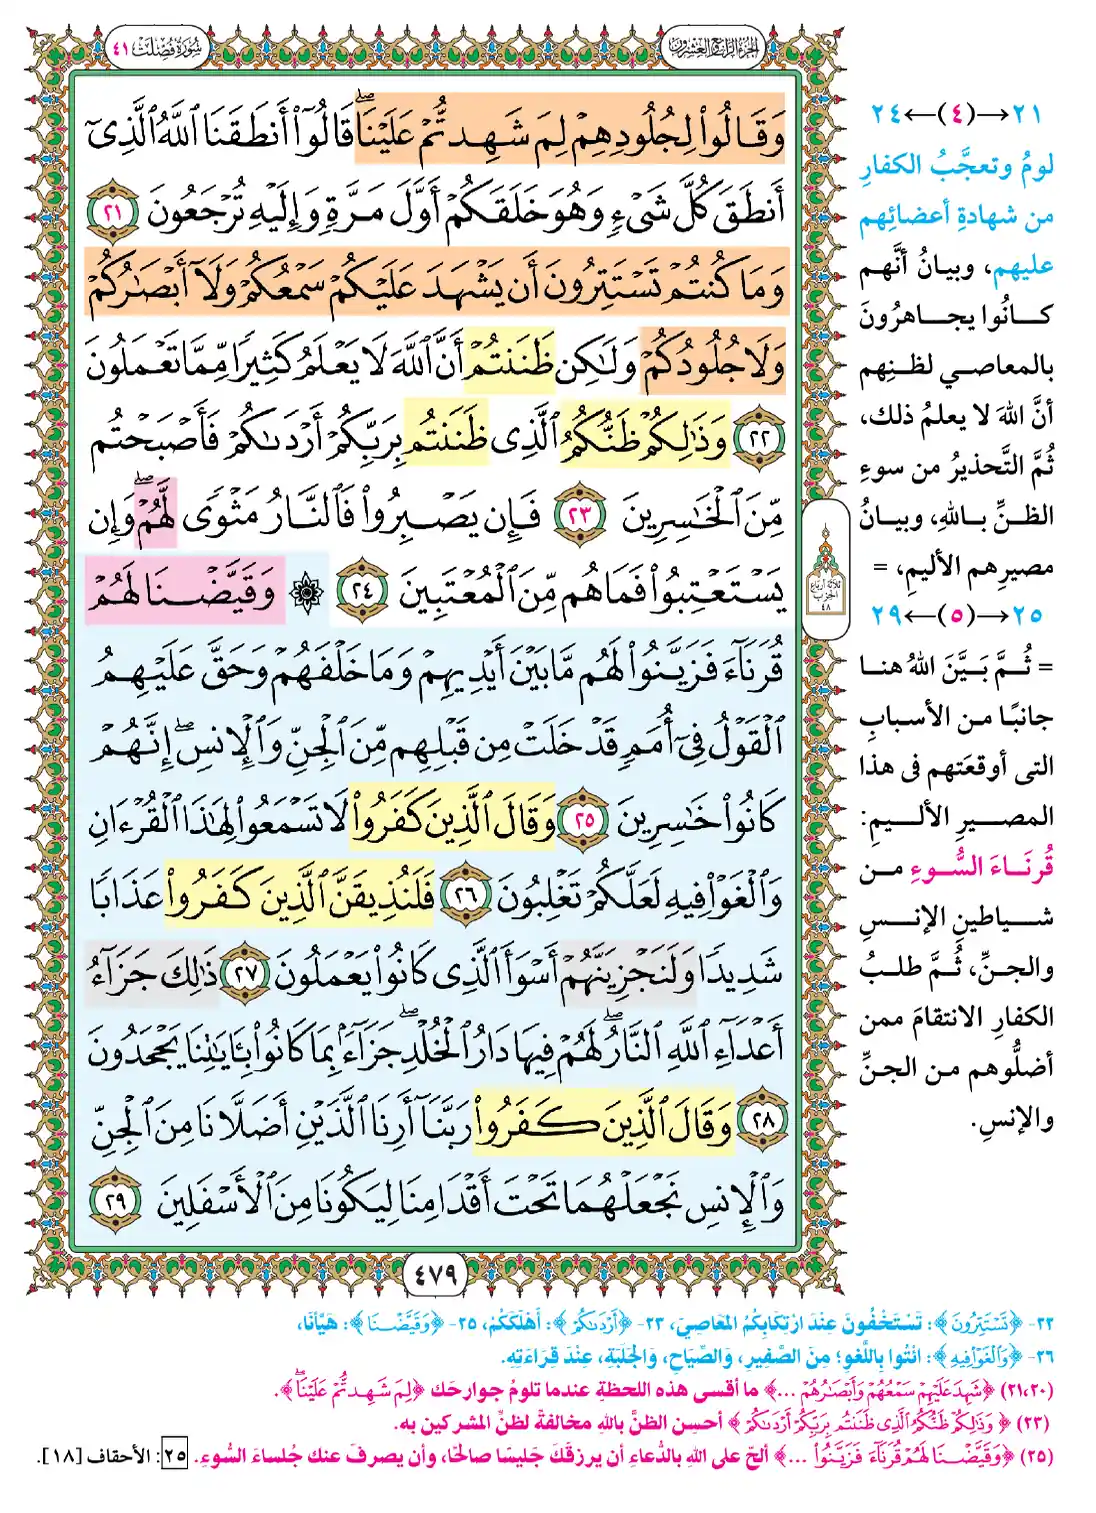 الجزء الرابع والعشرون
سورة فصلت ٤١
وَقَالُوا۟ لِجُلُودِهِمْ لِمَ شَهِدتُّمْ عَلَيْنَا ۖ قَالُوٓا۟ أَنطَقَنَا ٱللَّهُ ٱلَّذِىٓ
أَنطَقَ كُلَّ شَىْءٍ وَهُوَ خَلَقَكُمْ أَوَّلَ مَرَّةٍ وَإِلَيْهِ تُرْجَعُونَ ٢١
وَمَا كُنتُمْ تَسْتَتِرُونَ أَن يَشْهَدَ عَلَيْكُمْ سَمْعُكُمْ وَلَآ أَبْصَٰرُكُمْ
وَلَا جُلُودُكُمْ وَلَٰكِن ظَنَنتُمْ أَنَّ ٱللَّهَ لَا يَعْلَمُ كَثِيرًا مِّمَّا تَعْمَلُونَ
٢٢ وَذَٰلِكُمْ ظَنُّكُمُ ٱلَّذِى ظَنَنتُم بِرَبِّكُمْ أَرْدَىٰكُمْ فَأَصْبَحْتُم
مِّنَ ٱلْخَٰسِرِينَ ٢٣ فَإِن يَصْبِرُوا۟ فَٱلنَّارُ مَثْوًى لَّهُمْ ۖ وَإِن
يَسْتَعْتِبُوا۟ فَمَا هُم مِّنَ ٱلْمُعْتَبِينَ ٢٤ ۞ وَقَيَّضْنَا لَهُمْ
قُرَنَآءَ فَزَيَّنُوا۟ لَهُم مَّا بَيْنَ أَيْدِيهِمْ وَمَا خَلْفَهُمْ وَحَقَّ عَلَيْهِمُ
ٱلْقَوْلُ فِىٓ أُمَمٍ قَدْ خَلَتْ مِن قَبْلِهِم مِّنَ ٱلْجِنِّ وَٱلْإِنسِ ۖ إِنَّهُمْ
كَانُوا۟ خَٰسِرِينَ ٢٥ وَقَالَ ٱلَّذِينَ كَفَرُوا۟ لَا تَسْمَعُوا۟ لِهَٰذَا ٱلْقُرْءَانِ
وَٱلْغَوْا۟ فِيهِ لَعَلَّكُمْ تَغْلِبُونَ ٢٦ فَلَنُذِيقَنَّ ٱلَّذِينَ كَفَرُوا۟ عَذَابًا
شَدِيدًا وَلَنَجْزِيَنَّهُمْ أَسْوَأَ ٱلَّذِى كَانُوا۟ يَعْمَلُونَ ٢٧ ذَٰلِكَ جَزَآءُ
أَعْدَآءِ ٱللَّهِ ٱلنَّارُ ۖ لَهُمْ فِيهَا دَارُ ٱلْخُلْدِ ۖ جَزَآءًۢ بِمَا كَانُوا۟ بِـَٔايَٰتِنَا يَجْحَدُونَ
٢٨ وَقَالَ ٱلَّذِينَ كَفَرُوا۟ رَبَّنَآ أَرِنَا ٱلَّذَيْنِ أَضَلَّانَا مِنَ ٱلْجِنِّ
وَٱلْإِنسِ نَجْعَلْهُمَا تَحْتَ أَقْدَامِنَا لِيَكُونَا مِنَ ٱلْأَسْفَلِينَ ٢٩
٤٧٩
٢١→(٤)←٢٤
لومُ وتعجَّبُ الكفارِ
من شهادةِ أعضائِهم
عليهم، وبيانُ أنَّهم
كـانُوا يجـاهرُونَ
بالمعاصي لظنِهم
أنَّ اللهَ لا يعلمُ ذلك،
ثُمَّ التَّحذيرُ من سوءِ
الظنِّ باللهِ، وبيانُ
مصيرِهم الأليمِ، =
٢٥→(٥)←٢٩
= ثُمَّ بَيَّنَ اللهُ هنا
جانبًا من الأسبابِ
التى أوقعَتهم فى هذا
المصيرِ الأليمِ:
قُرنَاءَ السُّوءِ من
شياطينِ الإنسِ
والجنِّ، ثُمَّ طلبُ
الكفارِ الانتقامَ ممن
أضلُّوهم من الجنِّ
والإنسِ.
ثلاثة أرباع
الحزب
٤٨
٢٢- ﴿تَسْتَتِرُونَ﴾: تَسْتَخْفُونَ عِنْدَ ارْتِكَابِكُمُ المَعَاصِيَ، ٢٣- ﴿أَرْدَىٰكُمْ﴾: أَهْلَكَكُمْ، ٢٥- ﴿وَقَيَّضْنَا﴾: هَيَّأْنَا،
٢٦- ﴿وَٱلْغَوْا۟ فِيهِ﴾: ائْتُوا بِاللَّغْوِ؛ مِنَ الصَّفِيرِ، وَالصِّيَاحِ، وَالجَلَبَةِ، عِنْدَ قِرَاءَتِهِ.
(٢١،٢٠) ﴿شَهِدَ عَلَيْهِمْ سَمْعُهُمْ وَأَبْصَٰرُهُمْ ...﴾ ما أقسى هذه اللحظةِ عندما تلومُ جوارحَك ﴿لِمَ شَهِدتُّمْ عَلَيْنَا ۖ﴾.
(٢٣) ﴿وَذَٰلِكُمْ ظَنُّكُمُ ٱلَّذِى ظَنَنتُم بِرَبِّكُمْ أَرْدَىٰكُمْ﴾ أحسِن الظنَّ باللهِ مخالفةً لظنِّ المشركين به.
(٢٥) ﴿وَقَيَّضْنَا لَهُمْ قُرَنَآءَ فَزَيَّنُوا۟ ...﴾ ألحّ على اللهِ بالدُّعاءِ أن يرزقَكَ جَليسًا صالحًا، وأن يصرفَ عنك جُلساءَ السُّوءِ. ٢٥: الأحقاف [١٨].